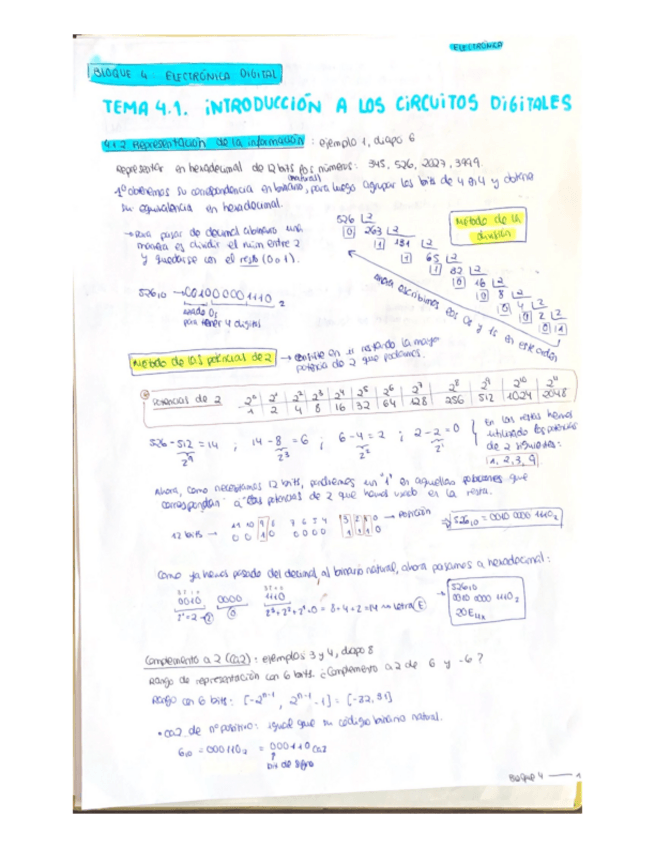 ELECTRÓNICA
BLOQUE 4 ELECTRÓNICA DIGITAL
TEMA 4.1. INTRODUCCIÓN A LOS CIRCUITOS DIGITALES
4.1.2 Representación de la información : ejemplo 1, diapo 6
Representar en hexadecimal de 12 bits los números: 345, 526, 2027, 3999.
(natural)
1º obtenemos su correspondencia en binario, para luego agrupar los bits de 4 en 4 y obtener
su equivalencia en hexadecimal.
→ Para pasar de decimal a binario una
manera es dividir el núm entre 2
y quedarse con el resto (0 o 1).
Método de la
división
526 |2
0 263 |2
1 131 |2
1 65 |2
1 32 |2
0 16 |2
0 8 |2
0 4 |2
0 2 |2
0 1
ahora escribimos los 0s y 1s en este orden
526₁₀ → 001000001110 ₂
añado 0s
para tener 4 dígitos
Método de las potencias de 2 → consiste en ir restando la mayor
potencia de 2 que podamos.
Potencias de 2 2⁰ 2¹ 2² 2³ 2⁴ 2⁵ 2⁶ 2⁷ 2⁸ 2⁹ 2¹⁰ 2¹¹
1 2 4 8 16 32 64 128 256 512 1024 2048
526 - 512 = 14 ; 14 - 8 = 6 ; 6 - 4 = 2 ; 2 - 2 = 0
2⁹ 2³ 2² 2¹
En las restas hemos
utilizado las potencias
de 2 siguientes:
1, 2, 3, 9
Ahora, como necesitamos 12 bits, pondremos un "1" en aquellas posiciones que
correspondan a las potencias de 2 que hemos usado en la resta.
11 10 9 8 7 6 5 4 3 2 1 0 → Posición
12 bits → 0 0 1 0 0 0 0 0 1 1 1 0
⇒ 526₁₀ = 0010 0000 1110₂
Como ya hemos pasado del decimal, al binario natural, ahora pasamos a hexadecimal:
3 2 1 0
0010 0000 1110
2¹ = 2 → 2 0 2³ + 2² + 2¹ + 0 = 8 + 4 + 2 = 14 → Letra E
→ 526₁₀
0010 0000 1110 ₂
20E Hx
Complemento a 2 (Ca2) : ejemplos 3 y 4, diapo 8
Rango de representación con 6 bits. ¿Complemento a 2 de 6 y -6?
Rango con 6 bits: [-2ⁿ⁻¹, 2ⁿ⁻¹ - 1] = [-32, 31]
• Ca2 de nº positivo: igual que su código binario natural.
6₁₀ = 000110₂ = 000110 Ca2
bit de signo
Bloque 4 — 1